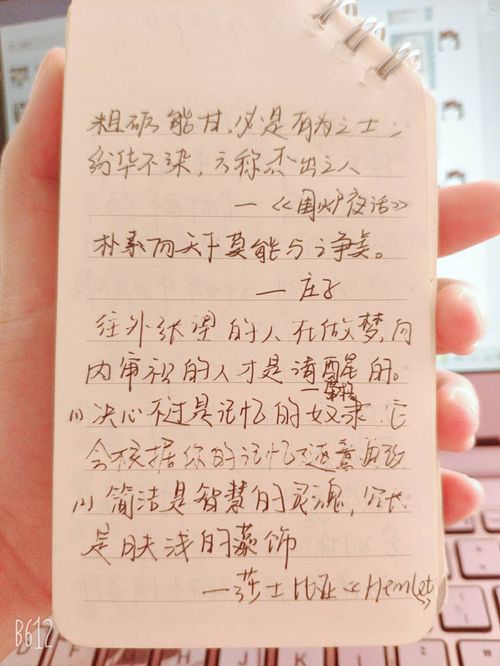 粗砺能甘，必是有为之士；
纷华不染，方称杰出之人
—《围炉夜话》
朴素而天下莫能与之争美。
—庄子
往外张望的人在做梦，向
内审视的人才是清醒的。
—荣格
(1) 决心不过是记忆的奴隶，它
会根据你的记忆随意更改
(2) 简洁是智慧的灵魂，冗长
是肤浅的藻饰
—莎士比亚《Hemlet》
B612